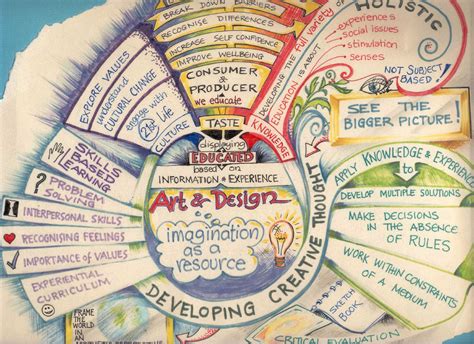 BREAK DOWN BARRIERS
RECOGNISE DIFFERENCES
INCREASE SELF CONFIDENCE
IMPROVE WELLBEING
CONSUMER
&
PRODUCER
we educate
TASTE
displaying
EDUCATED
based on
INFORMATION & EXPERIENCE
Art & Design
imagination
as a
resource
DEVELOPING CREATIVE THOUGHT
EXPLORE VALUES
understand
CULTURAL CHANGE
engage with
21st Life
CULTURE
KNOWLEDGE
EDUCATION IS ABOUT
DEVELOPING THE Full Variety of
HOLISTIC
experiences
social issues
stimulation
senses
NOT SUBJECT
BASED!
SEE THE
BIGGER PICTURE!
APPLY KNOWLEDGE & EXPERIENCE
to
DEVELOP MULTIPLE SOLUTIONS
MAKE DECISIONS
IN THE ABSENCE
OF RULES
WORK WITHIN CONSTRAINTS
OF A MEDIUM
SKILLS
BASED
LEARNING
? PROBLEM
SOLVING
INTERPERSONAL SKILLS
RECOGNISING FEELINGS
IMPORTANCE OF VALUES
EXPERIENTIAL
CURRICULUM
FRAME THE
WORLD
IN AN
SKETCH
BOOK
CRITICAL EVALUATION